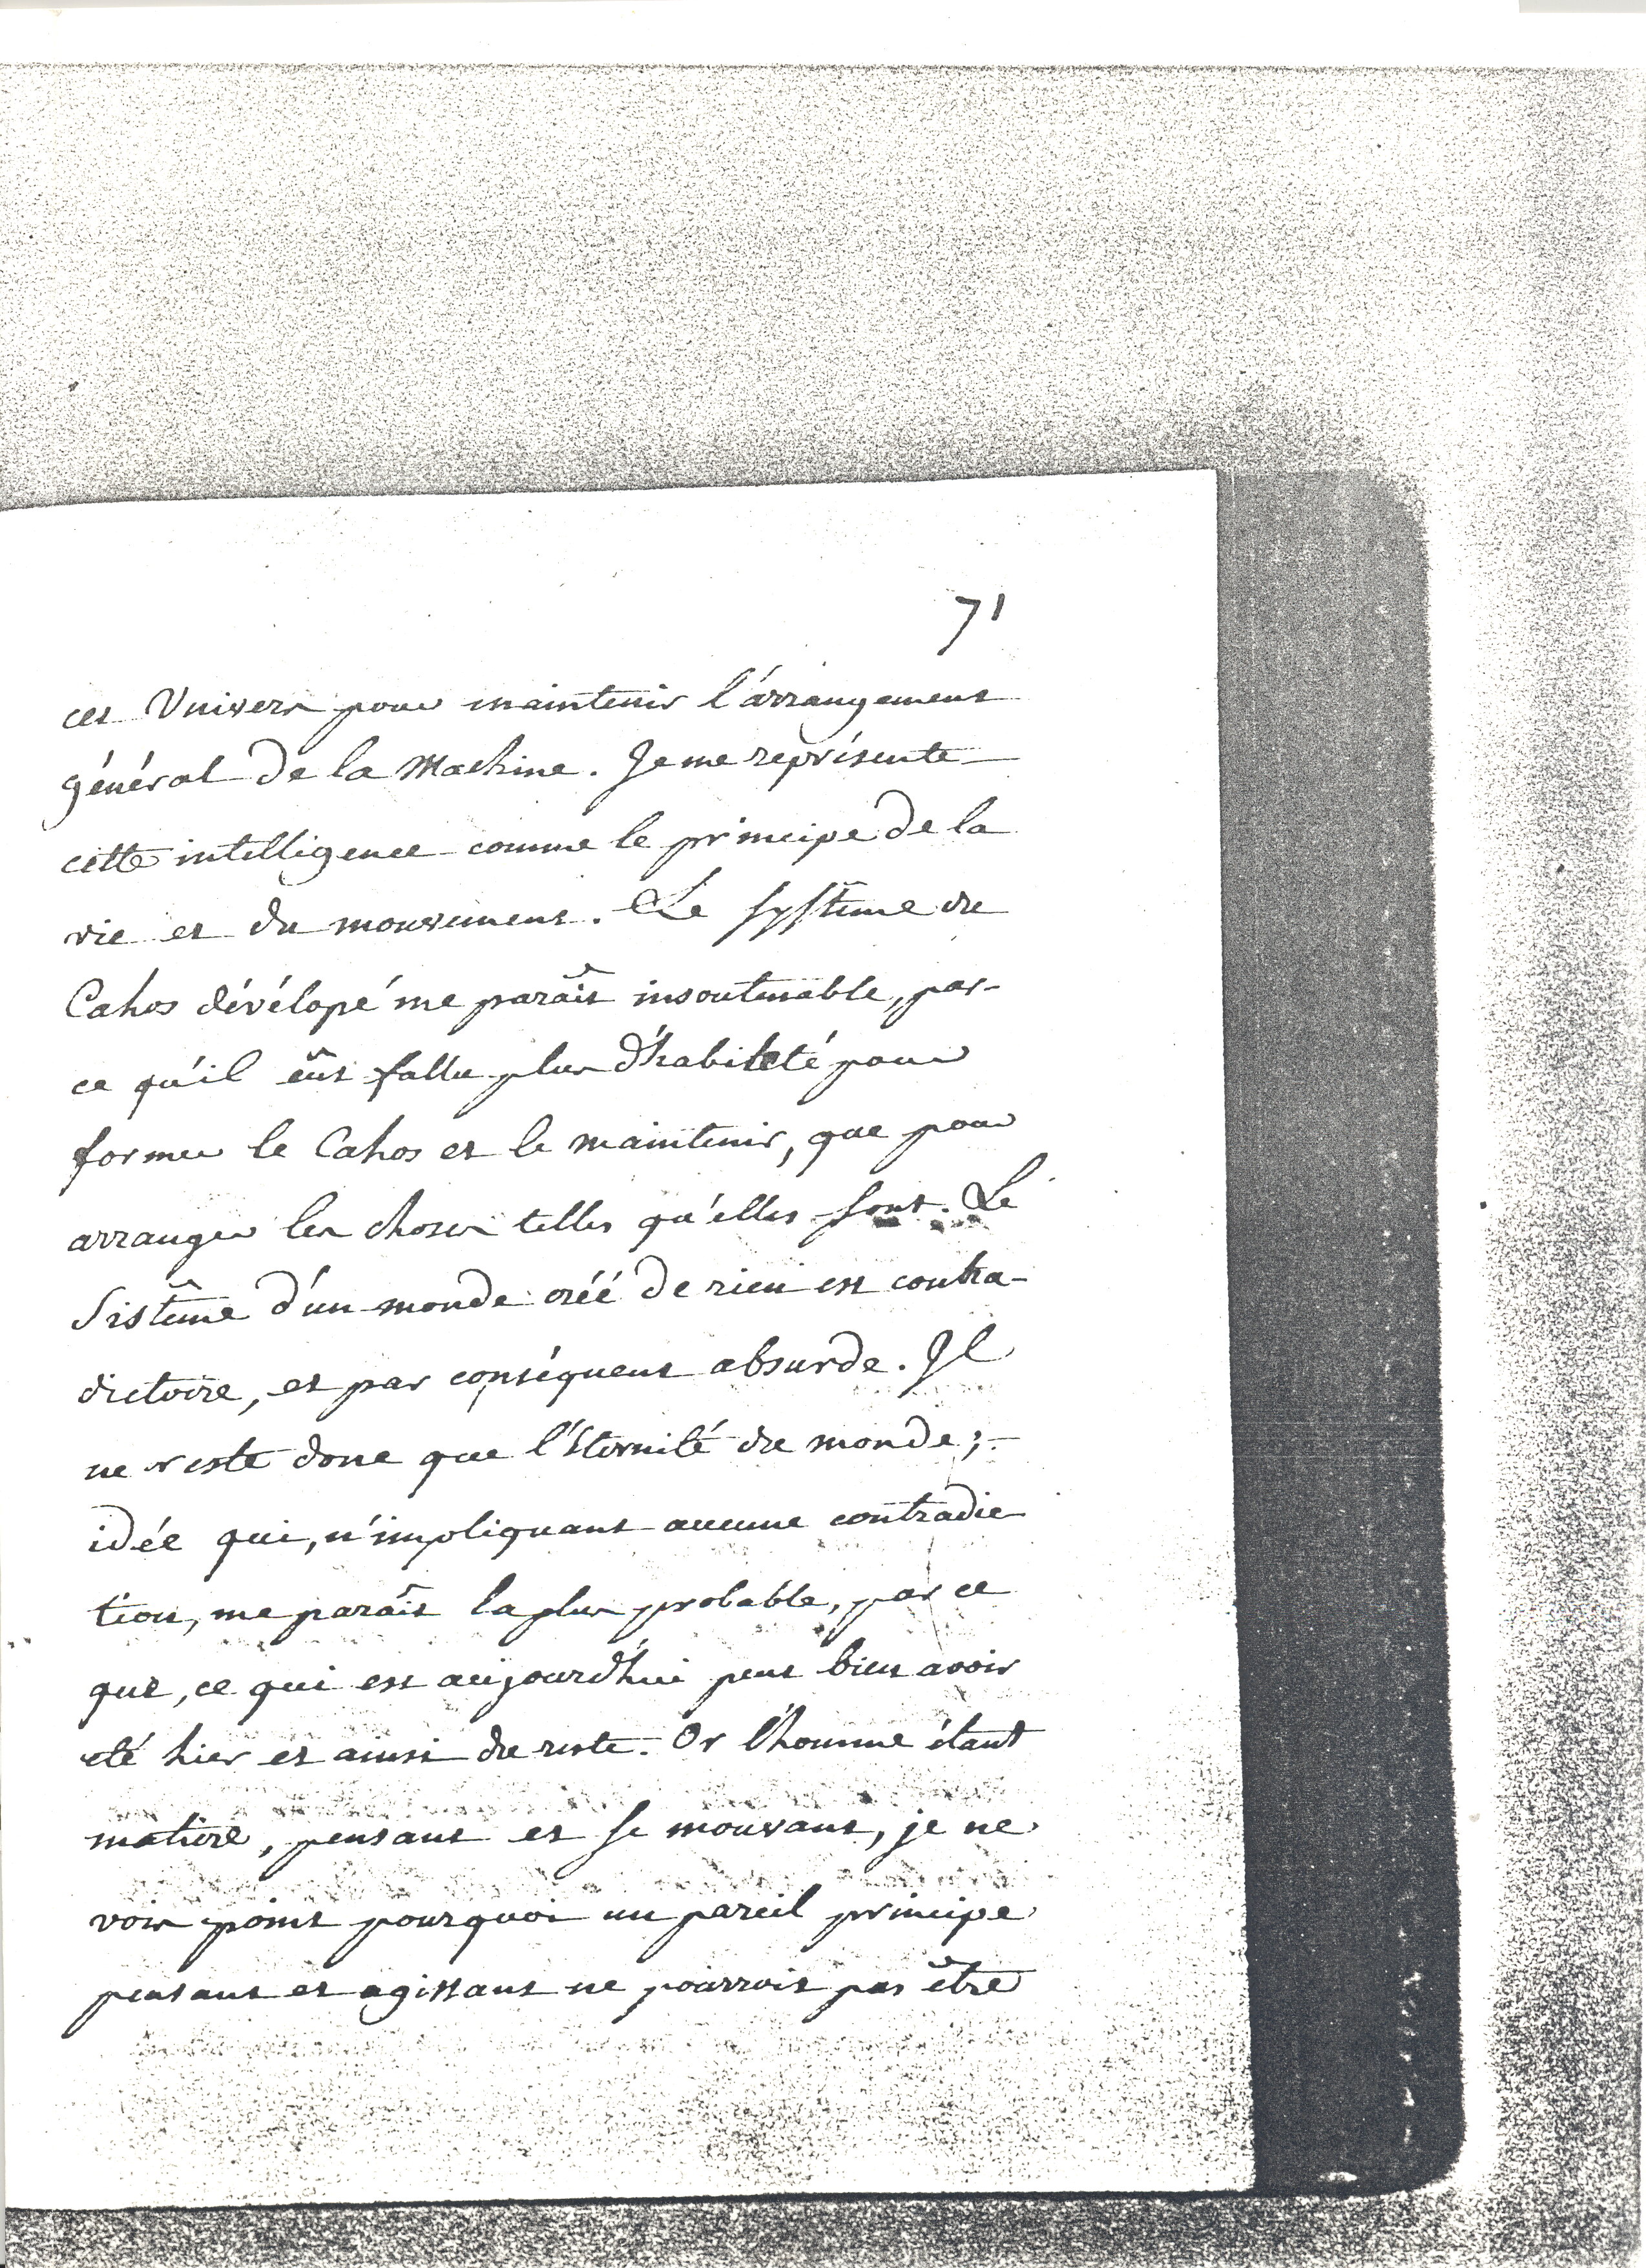 71
cet Univers pour maintenir l'arrangement
général de la Machine. Je me représente
cette intelligence comme le principe de la
vie et du mouvement. Le systême du
Cahos dévélopé me paraît insoutenable, par-
ce qu'il eût fallu plus d'habileté pour
former le Cahos et le maintenir, que pour
arranger les choses telles qu'elles sont. Le
Sistême d'un monde créé de rien est contra-
dictoire, et par conséquent absurde. Il
ne reste donc que l'Eternité du monde;
idée qui, n'impliquant aucune contradic
tion, me paraît la plus probable, par ce
que, ce qui est aujourd'hui peut bien avoir
eté hier et ainsi du reste. Or l'homme étant
matière, pensant et se mouvant, je ne
vois point pourquoi un pareil principe
pensant et agissant ne pourroit pas être